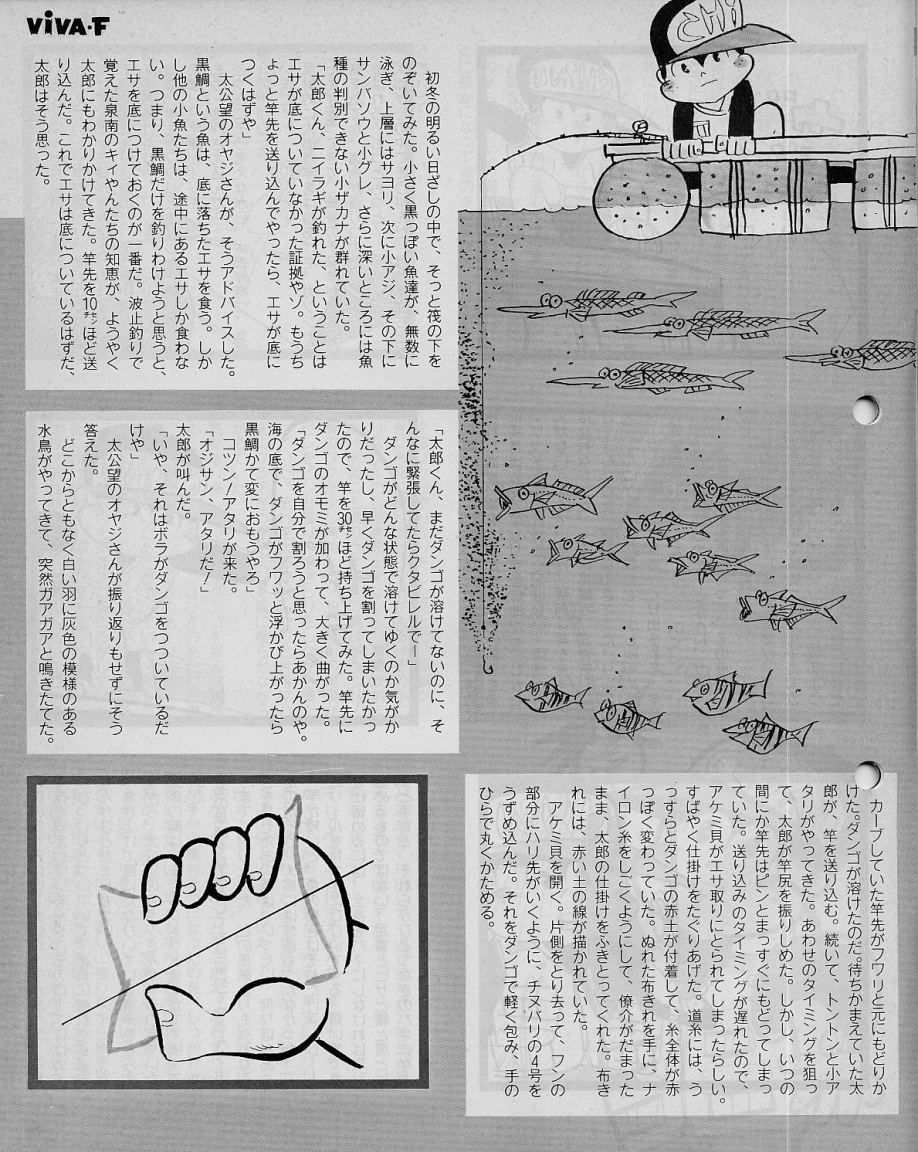 ViVA・F
CHI
初冬の明るい日ざしの中で、そっと筏の下を
のぞいてみた。小さく黒っぽい魚達が、無数に
泳ぎ、上層にはサヨリ、次に小アジ、その下に
サンバソウと小グレ、さらに深いところには魚
種の判別できない小ザカナが群れていた。
「太郎くん、ニイラギが釣れた、ということは
エサが底についていなかった証拠やゾ。もうち
ょっと竿先を送り込んでやったら、エサが底に
つくはずや」
太公望のオヤジさんが、そうアドバイスした。
黒鯛という魚は、底に落ちたエサを食う。しか
し他の小魚たちは、途中にあるエサしか食わな
い。つまり、黒鯛だけを釣りわけようと思うと、
エサを底につけておくのが一番だ。波止釣りで
覚えた泉南のキィやんたちの知恵が、ようやく
太郎にもわかりかけてきた。竿先を10㌢ほど送
り込んだ。これでエサは底についているはずだ、
太郎はそう思った。
「太郎くん、まだダンゴが溶けてないのに、そ
んなに緊張してたらクタビレルでー」
ダンゴがどんな状態で溶けてゆくのか気がか
りだったし、早くダンゴを割ってしまいたかっ
たので、竿を30㌢ほど持ち上げてみた。竿先に
ダンゴのオモミが加わって、大きく曲がった。
「ダンゴを自分で割ろうと思ったらあかんのや。
海の底で、ダンゴがフワッと浮かび上がったら
黒鯛かて変におもうやろ」
コツン！アタリが来た。
「オジサン、アタリだ！」
太郎が叫んだ。
「いや、それはボラがダンゴをつついているだ
けや」
太公望のオヤジさんが振り返りもせずにそう
答えた。
どこからともなく白い羽に灰色の模様のある
水鳥がやってきて、突然ガアガアと鳴きたてた。
カーブしていた竿先がフワリと元にもどりか
けた。ダンゴが溶けたのだ。待ちかまえていた太
郎が、竿を送り込む。続いて、トントンと小ア
タリがやってきた。あわせのタイミングを狙っ
て、太郎が竿尻を振りしめた。しかし、いつの
間にか竿先はピンとまっすぐにもどってしまっ
ていた。送り込みのタイミングが遅れたので、
アケミ貝がエサ取りにとられてしまったらしい。
すばやく仕掛けをたぐりあげた。道糸には、う
っすらとダンゴの赤土が付着して、糸全体が赤
っぽく変わっていた。ぬれた布きれを手に、ナ
イロン糸をしごくようにして、僚介がだまった
まま、太郎の仕掛けをふきとってくれた。布き
れには、赤い土の線が描かれていた。
アケミ貝を開く。片側をとり去って、フンの
部分にハリ先がいくように、チヌバリの4号を
うずめ込んだ。それをダンゴで軽く包み、手の
ひらで丸くかためる。